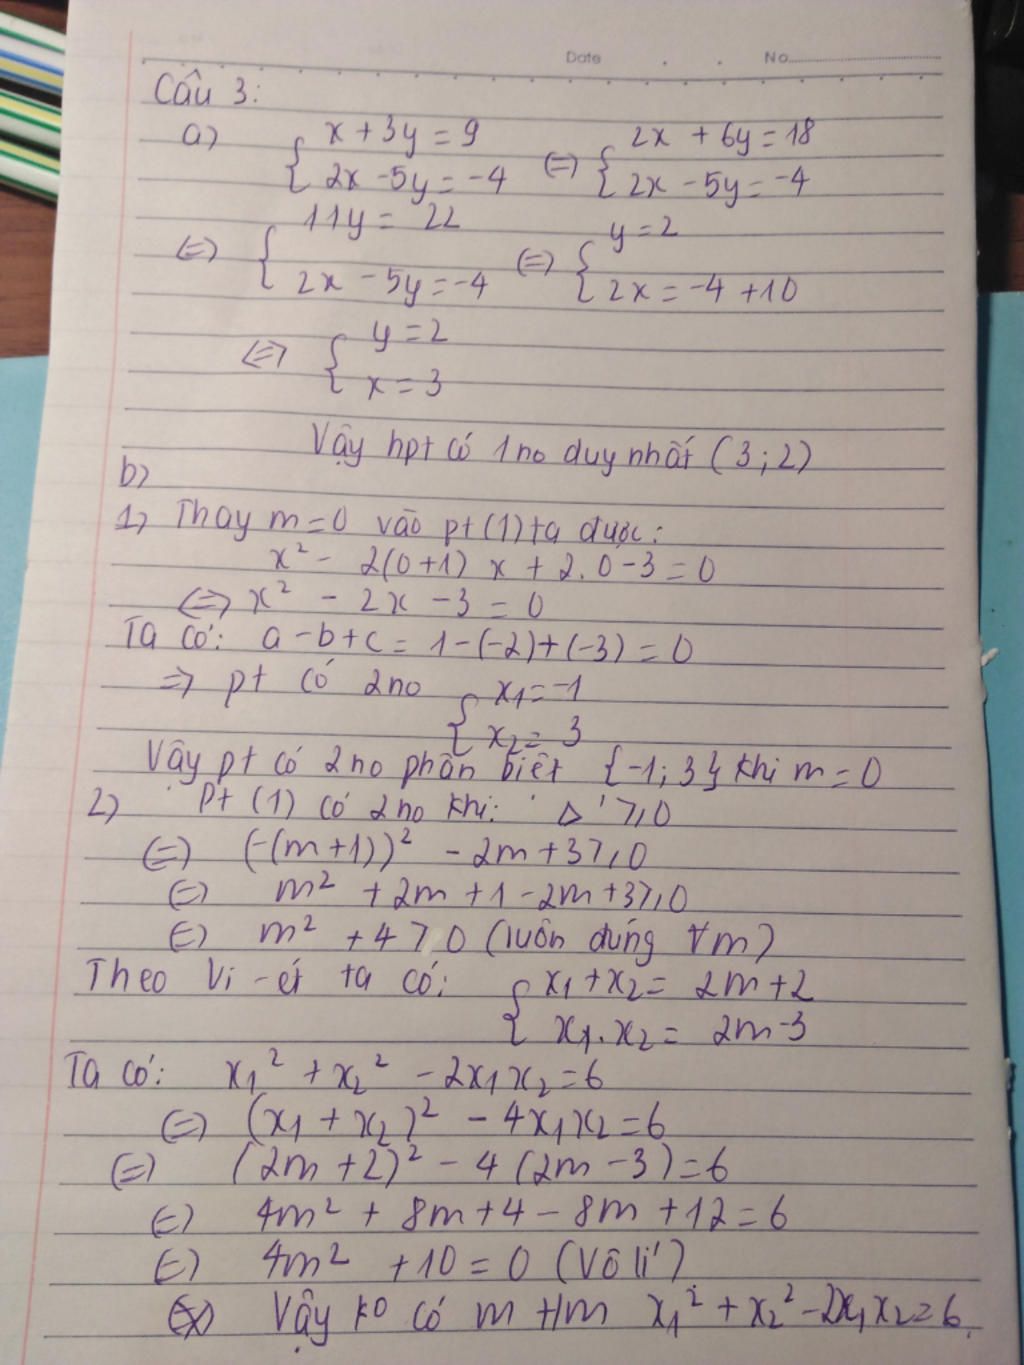 Date No
Câu 3:
a) { x + 3y = 9 (=) { 2x + 6y = 18
2x - 5y = -4 2x - 5y = -4
(=) { 11y = 22 (=) { y = 2
2x - 5y = -4 2x = -4 + 10
<=> { y = 2
x = 3
Vậy hpt có 1 no duy nhất (3; 2)
b)
1) Thay m = 0 vào pt (1) ta được:
x² - 2(0+1) x + 2.0 - 3 = 0
<=> x² - 2x - 3 = 0
Ta có: a - b + c = 1 - (-2) + (-3) = 0
=> pt có 2 no { x₁ = -1
x₂ = 3
Vậy pt có 2 no phân biệt {-1; 3} khi m = 0
2) Pt (1) có 2 no khi: Δ' ≥ 0
(=) (-(m+1))² - 2m + 3 ≥ 0
(=) m² + 2m + 1 - 2m + 3 ≥ 0
(=) m² + 4 > 0 (luôn đúng ∀m)
Theo Vi-ét ta có: { x₁ + x₂ = 2m + 2
x₁ . x₂ = 2m - 3
Ta có: x₁² + x₂² - 2x₁x₂ = 6
(=) (x₁ + x₂)² - 4x₁x₂ = 6
(=) (2m + 2)² - 4 (2m - 3) = 6
(=) 4m² + 8m + 4 - 8m + 12 = 6
(=) 4m² + 10 = 0 (Vô lí)
Vậy ko có m t/m x₁² + x₂² - 2x₁x₂ = 6.